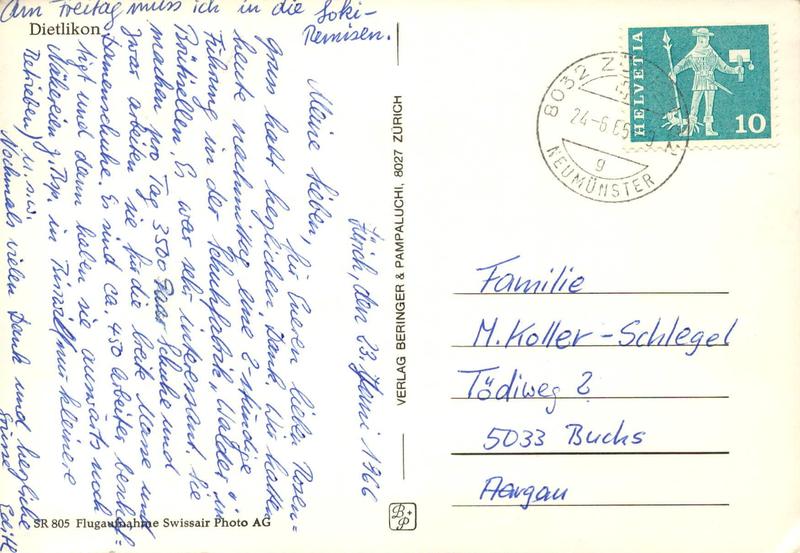 Am Freitag muss ich in die Loki-
Remisen.
Dietlikon
Zürich, den 23. Juni 1966
Meine Lieben, für Euren lieben Rosen-
gruss habt herzlichen Dank. Wir hatten
heute nachmittag eine 2-stündige
Führung in der Schuhfabrik „Walder" in
Brüttisellen. Es war sehr interessant. Sie
machen pro Tag 3500 Paar Schuhe und
zwar arbeiten sie für die breite Masse und
Damenschuhe. Es sind ca. 450 Arbeiter beschäf-
tigt und dann haben sie auswärts noch
Nähereien z. Bsp. in (nur kleinere
Betrieben) u.s.w.
Nochmals vielen Dank und herzliche
Grüsse Edith
SR 805 Flugaufnahme Swissair Photo AG
VERLAG BERINGER & PAMPALUCHI, 8027 ZÜRICH
B+P
HELVETIA
10
8032 ZÜRICH 32
24-6.66
9
NEUMÜNSTER
Familie
M. Koller-Schlegel
Tödiweg 2
5033 Buchs
Aargau